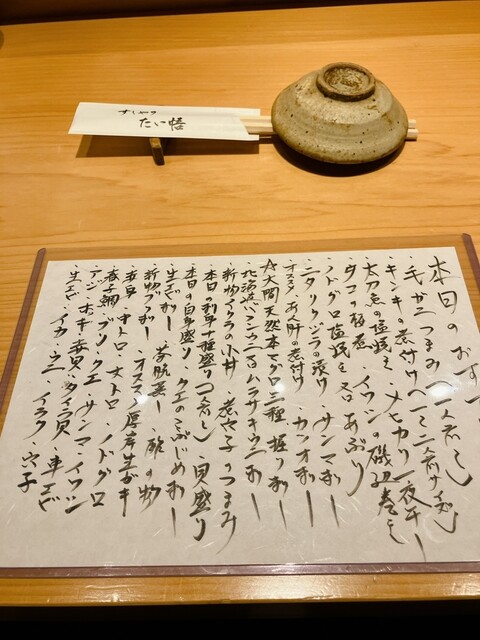 すし処
たい悟
本日のおすすめ
・毛がにつまみ(一人前)
・キンキの煮付け(一〜二人前サイズ) メヒカリ一夜干し
・太刀魚の塩焼き イワシの磯辺巻き
・タコの柚煮
・ノドグロ塩焼き 又は あぶり
・ニタリクジラの握り サンマおー
・オススメ あん肝の煮付け カツオおー
☆大間天然本マグロ三種握りおー
・北海道バフンウニ ムラサキウニおー
・新物イクラの小丼 煮穴子のつまみ
・本日の刺身十種盛り(一人前) 貝盛り
・本日の白身盛り クエのこぶじめおー
・生エビおー 茶碗蒸し 酢の物
・新物ブリおー オススメ 厚岸生ガキ
・赤身 中トロ 大トロ ノドグロ
・春子鯛 ブリ クエ サンマ イワシ
・アジ ホッキ 赤貝 タイラ貝 車エビ
・生エビ イカ ウニ イクラ 穴子